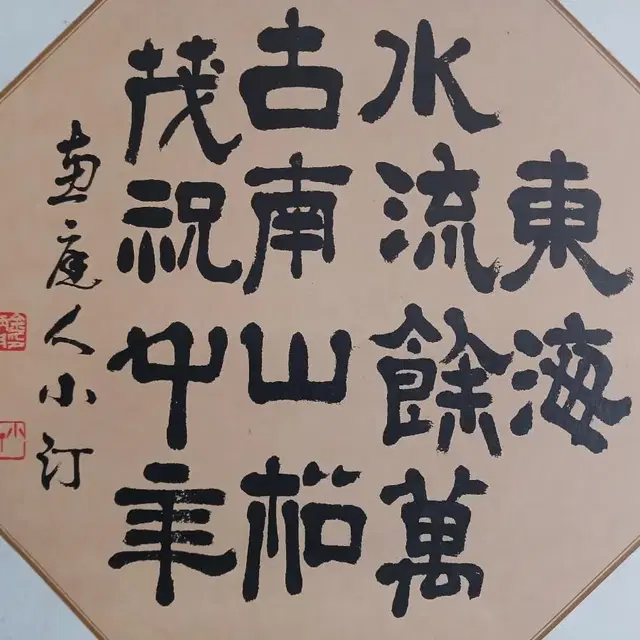 東海
水流餘萬
古南山松
茂祝千年
人小汀